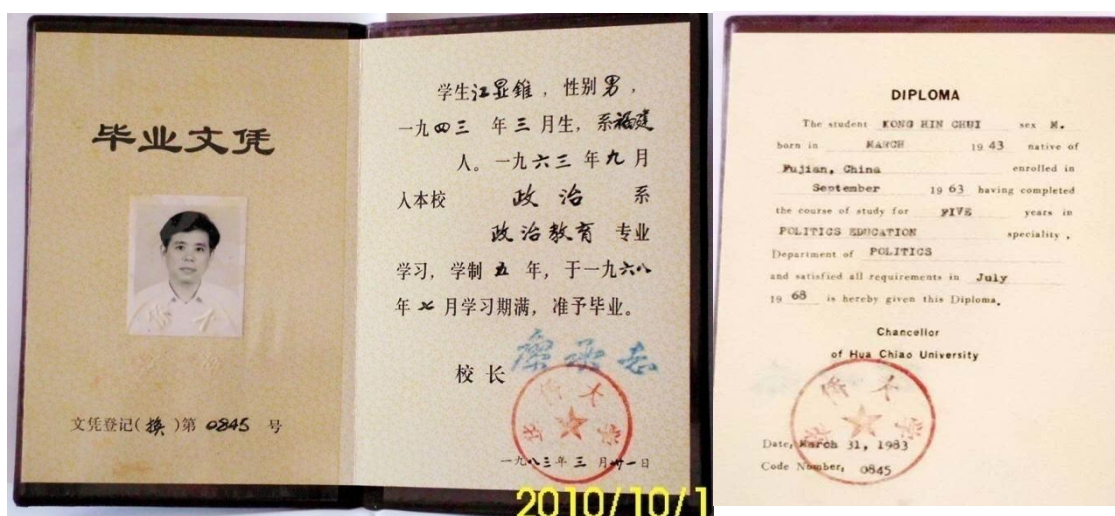 毕业文凭
文凭登记(换)第 0845 号
学生江显錐，性别男，
一九四三 年 三 月生，系福建
人。一九六三 年 九 月
入本校 政治 系
政治教育 专业
学习，学制 五 年，于一九六八
年 七 月学习期满，准予毕业。
校长 廖承志
华侨大学
一九八三年三月卅一日
2010/10/1
DIPLOMA
The student KONG HIN CHUI sex M.
born in MARCH 1943 native of
Fujian, China enrolled in
September 1963 having completed
the course of study for FIVE years in
POLITICS EDUCATION speciality,
Department of POLITICS
and satisfied all requirements in July
1968 is hereby given this Diploma.
Chancellor
of Hua Chiao University
华侨大学
Date: March 31, 1983
Code Number: 0845